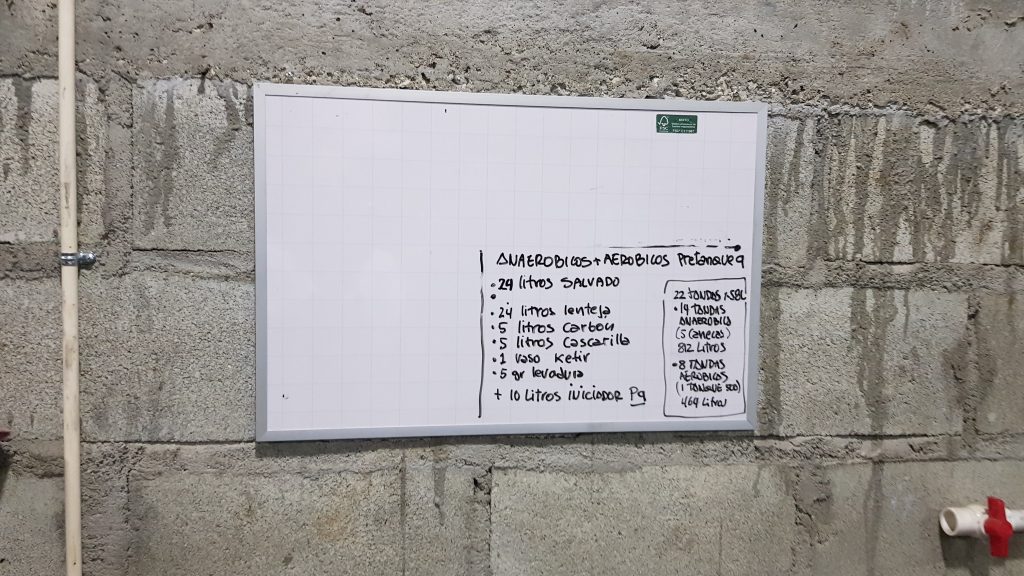 FSC
ANAEROBICOS + AEROBICOS
• 24 litros SALVADO
•
• 24 litros lenteja
• 5 litros carbon
• 5 litros cascarilla
• 1 vaso Kefir
• 5 gr levadura
+ 10 LITROS iNiCiADOR Pg
22 TANDAS x58L
• 14 TANDAS
ANAEROBICA
(5 canecas)
812 LITROS
• 8 TANDAS
AEROBICOS
(1 TANQUE 500)
464 Litros